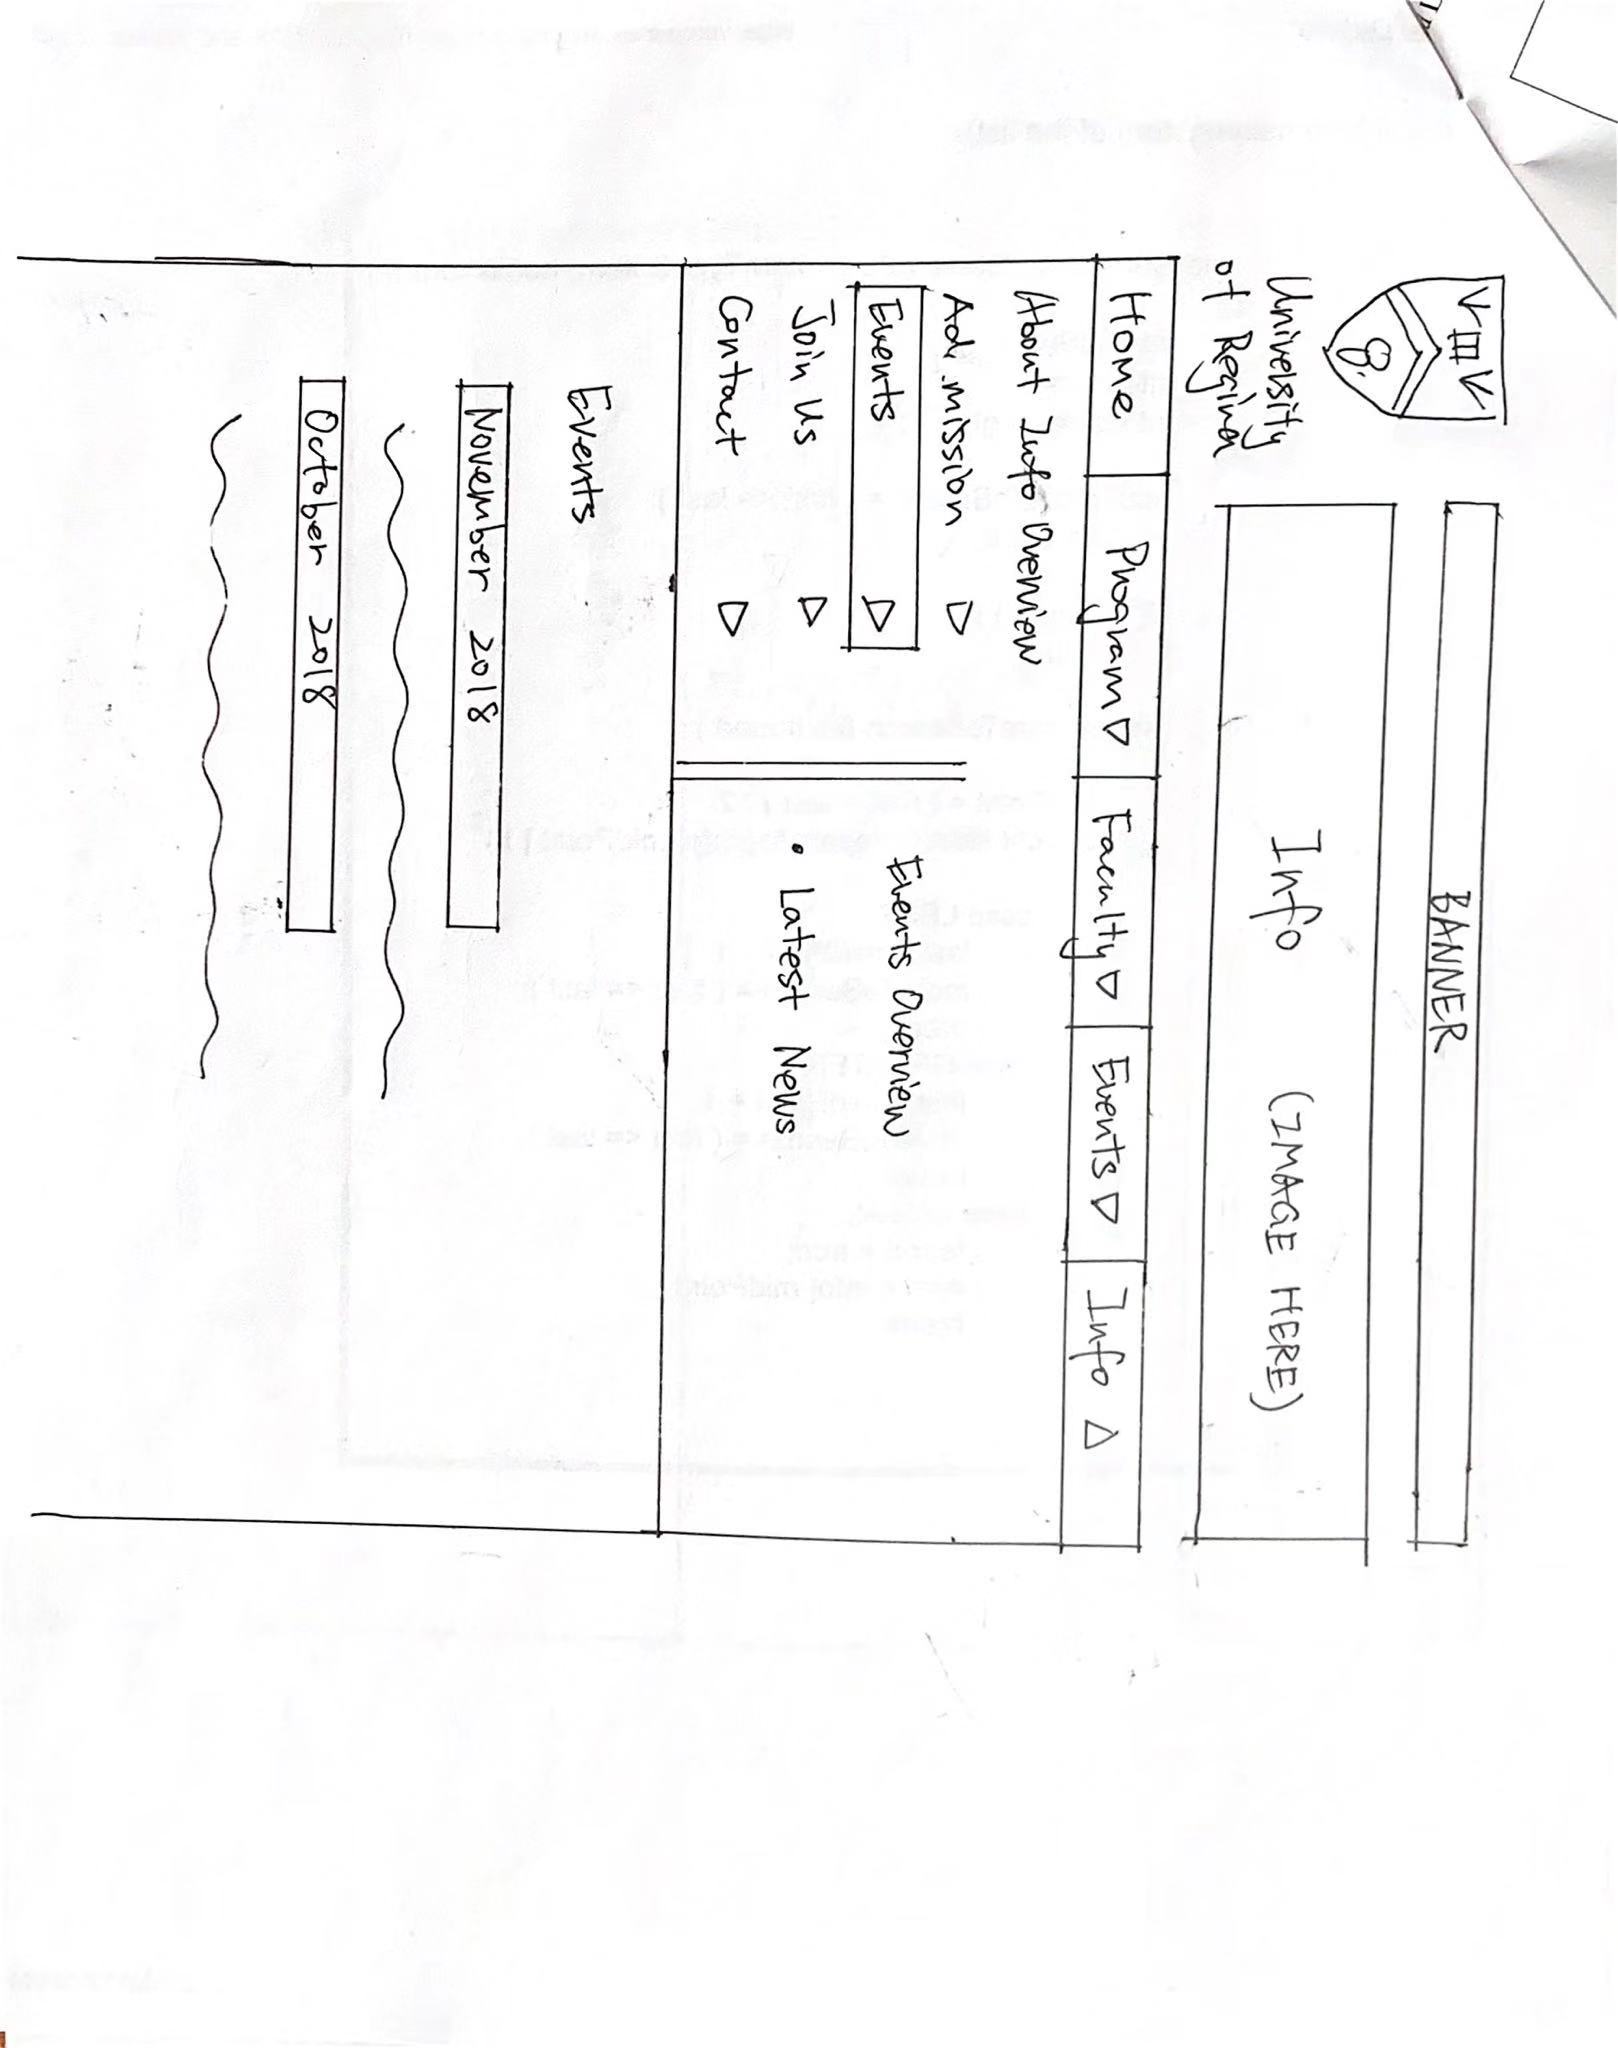 BANNER
University
of Regina
Info (IMAGE HERE)
Home Program Faculty Events Info
About Info Overview
Admission
Events
Join Us
Contact
Events Overview
• Latest News
Events
November 2018
October 2018